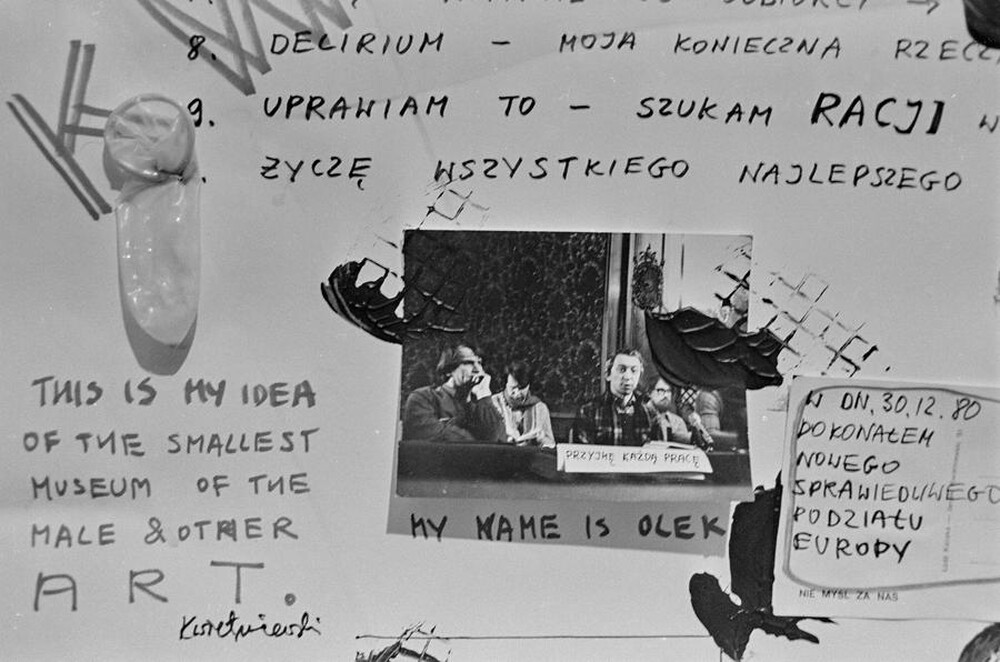 8. DELIRIUM – MOJA KONIECZNA
9. UPRAWIAM TO – SZUKAM RACJI W
ŻYCZĘ WSZYSTKIEGO NAJLEPSZEGO
PRZYJMĘ KAŻDĄ PRACĘ
MY NAME IS OLEK
THIS IS MY IDEA
OF THE SMALLEST
MUSEUM OF THE
MALE & OTHER
ART.
Kwietniewski
W DN. 30.12.80
DOKONAŁEM
NOWEGO
SPRAWIEDLIWEGO
PODZIAŁU
EUROPY
NIE MYŚL ZA NAS